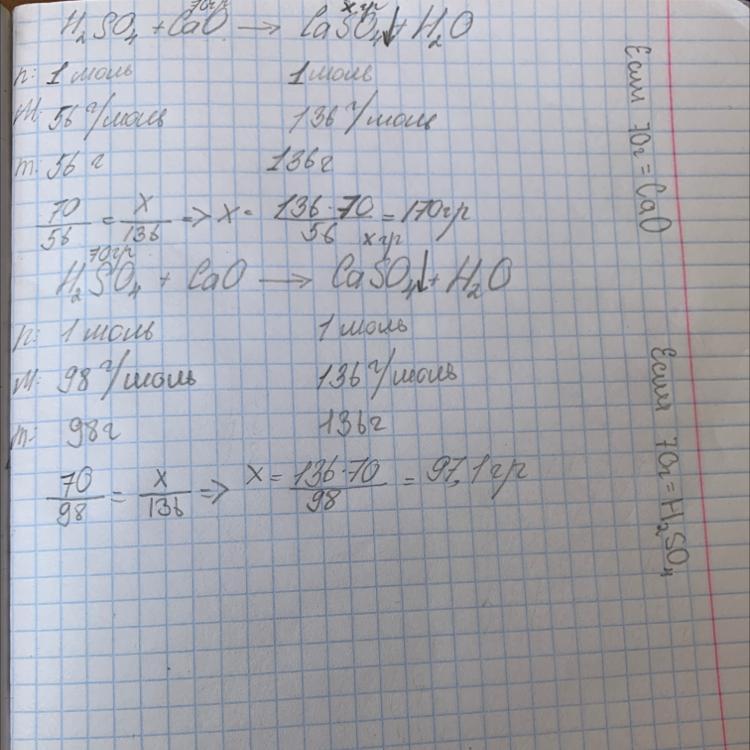 70гр х гр
H₂SO₄ + CaO → CaSO₄↓ + H₂O
n: 1 моль 1 моль
M: 56 г/моль 136 г/моль
m: 56 г 136 г
70/56 = x/136 => x = 136·70/56 = 170 гр
70гр х гр
H₂SO₄ + CaO → CaSO₄↓ + H₂O
n: 1 моль 1 моль
M: 98 г/моль 136 г/моль
m: 98 г 136 г
70/98 = x/136 => x = 136·70/98 = 97,1 гр
Если 70г = CaO
Если 70г = H₂SO₄